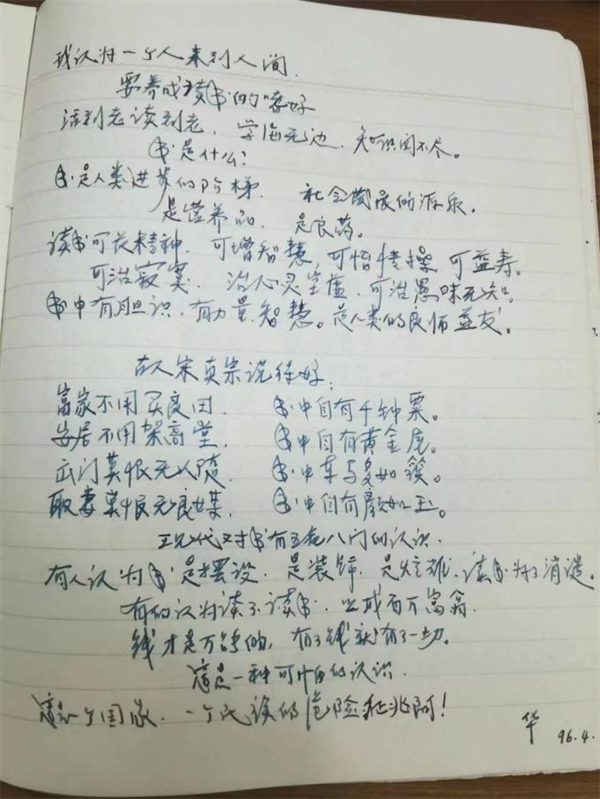 我认为一个人来到人间.
要养成读书的嗜好
活到老读到老, 学海无边. 知识阅不尽。
书是什么?
书是人类进步的阶梯. 社会发展的源泉.
是营养品. 是良药。
读书可花精神. 可增智慧, 可怡情操. 可益寿。
可治寂寞. 治心灵空虚. 可治愚昧无知。
书中有胆识. 有力量. 智慧。是人类的良师益友。
古人宋真宗说得好:
富家不用买良田. 书中自有千钟粟。
安居不用架高堂. 书中自有黄金屋。
出门莫恨无人随. 书中车马多如簇。
取妻莫恨无良媒. 书中自有颜如玉。
现代对书有五花八门的认识.
有人认为书是摆设. 是装饰. 是炫耀. 读书为了消遣。
有的认为读了读书. 当成百万富翁.
钱才是万能的, 有了钱就有了一切。
这是一种可怕的认识.
这是一个国家. 一个民族的危险征兆阿!
华 96.4.